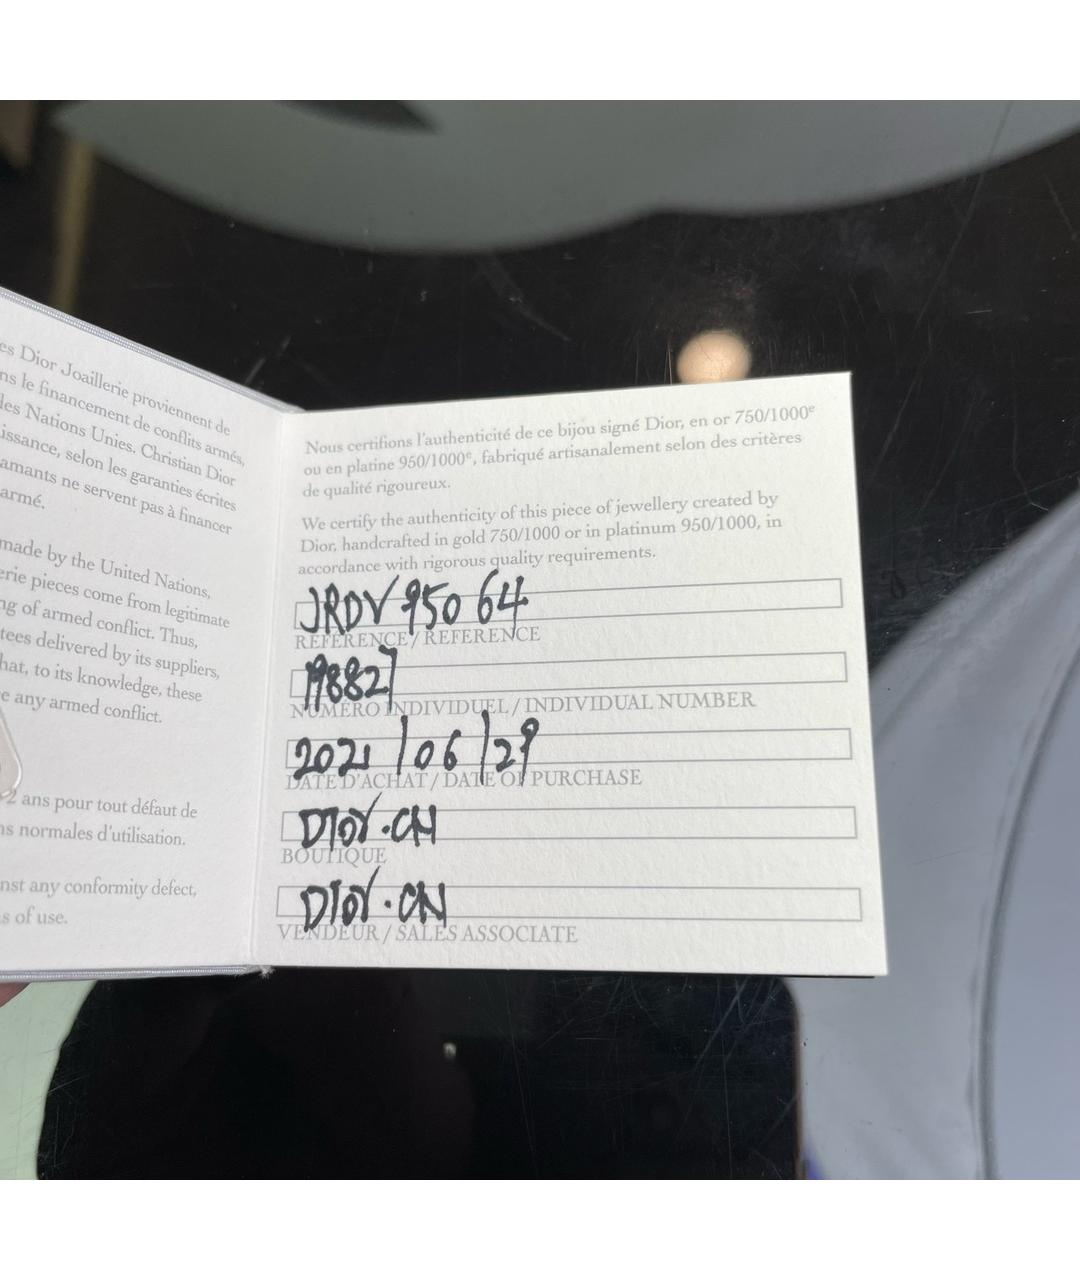 es Dior Joaillerie proviennent de
ns le financement de conflits armés,
des Nations Unies. Christian Dior
issance, selon les garanties écrites
amants ne servent pas à financer
armé.
made by the United Nations,
erie pieces come from legitimate
ng of armed conflict. Thus,
tees delivered by its suppliers,
hat, to its knowledge, these
e any armed conflict.
2 ans pour tout défaut de
ns normales d'utilisation.
nst any conformity defect,
s of use.
Nous certifions l'authenticité de ce bijou signé Dior, en or 750/1000e
ou en platine 950/1000e, fabriqué artisanalement selon des critères
de qualité rigoureux.
We certify the authenticity of this piece of jewellery created by
Dior, handcrafted in gold 750/1000 or in platinum 950/1000, in
accordance with rigorous quality requirements.
JRDV 950 64
RÉFÉRENCE / REFERENCE
19882
NUMÉRO INDIVIDUEL / INDIVIDUAL NUMBER
2021 / 06 / 29
DATE D'ACHAT / DATE OF PURCHASE
DIOR.CN
BOUTIQUE
DIOR.CN
VENDEUR / SALES ASSOCIATE